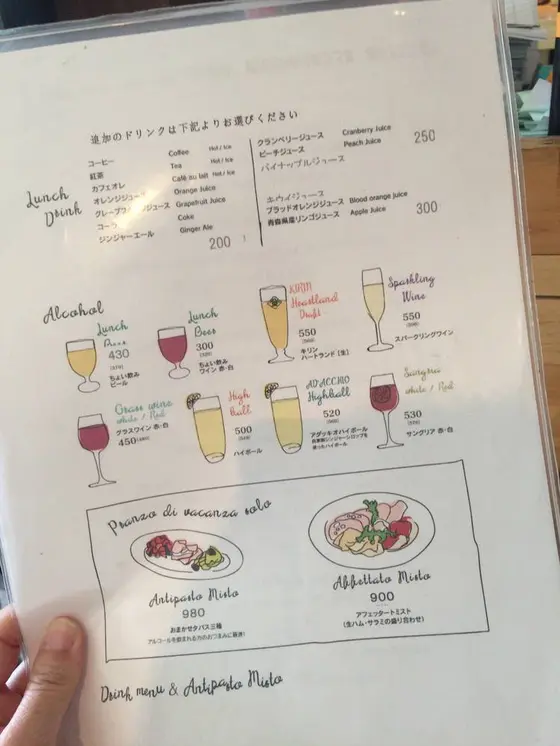 追加のドリンクは下記よりお選びください
Lunch
Drink
コーヒー Coffee Hot / Ice
紅茶 Tea Hot / Ice
カフェオレ Café au lait Hot / Ice
オレンジジュース Orange Juice
グレープフルーツジュース Grapefruit Juice
コーラ Coke
ジンジャーエール Ginger Ale
200
クランベリージュース Cranberry Juice
ピーチジュース Peach Juice
パイナップルジュース
250
キウイジュース
ブラッドオレンジジュース Blood orange juice
青森県産リンゴジュース Apple Juice
300
Alcohol
Lunch
Beer
430
ちょい飲み
ビール
Lunch
Beer
300
ちょい飲み
ワイン 赤・白
KIRIN
Heartland
Draft
550
キリン
ハートランド [生]
Sparkling
Wine
550
スパークリングワイン
Grass wine
white / Red
グラスワイン 赤・白
450
High
Ball
500
ハイボール
ADACCHIO
Highball
520
アダッキオハイボール
自家製ジンジャーシロップを
使ったハイボール
Sangria
white / Red
530
サングリア 赤・白
Pranzo di vacanza solo
Antipasto Misto
980
おまかせタパス三種
アルコールを飲まれる方のおつまみに最適!
Affettato Misto
900
アフェッタートミスト
(生ハム・サラミの盛り合わせ)
Drink menu & Antipasto Misto